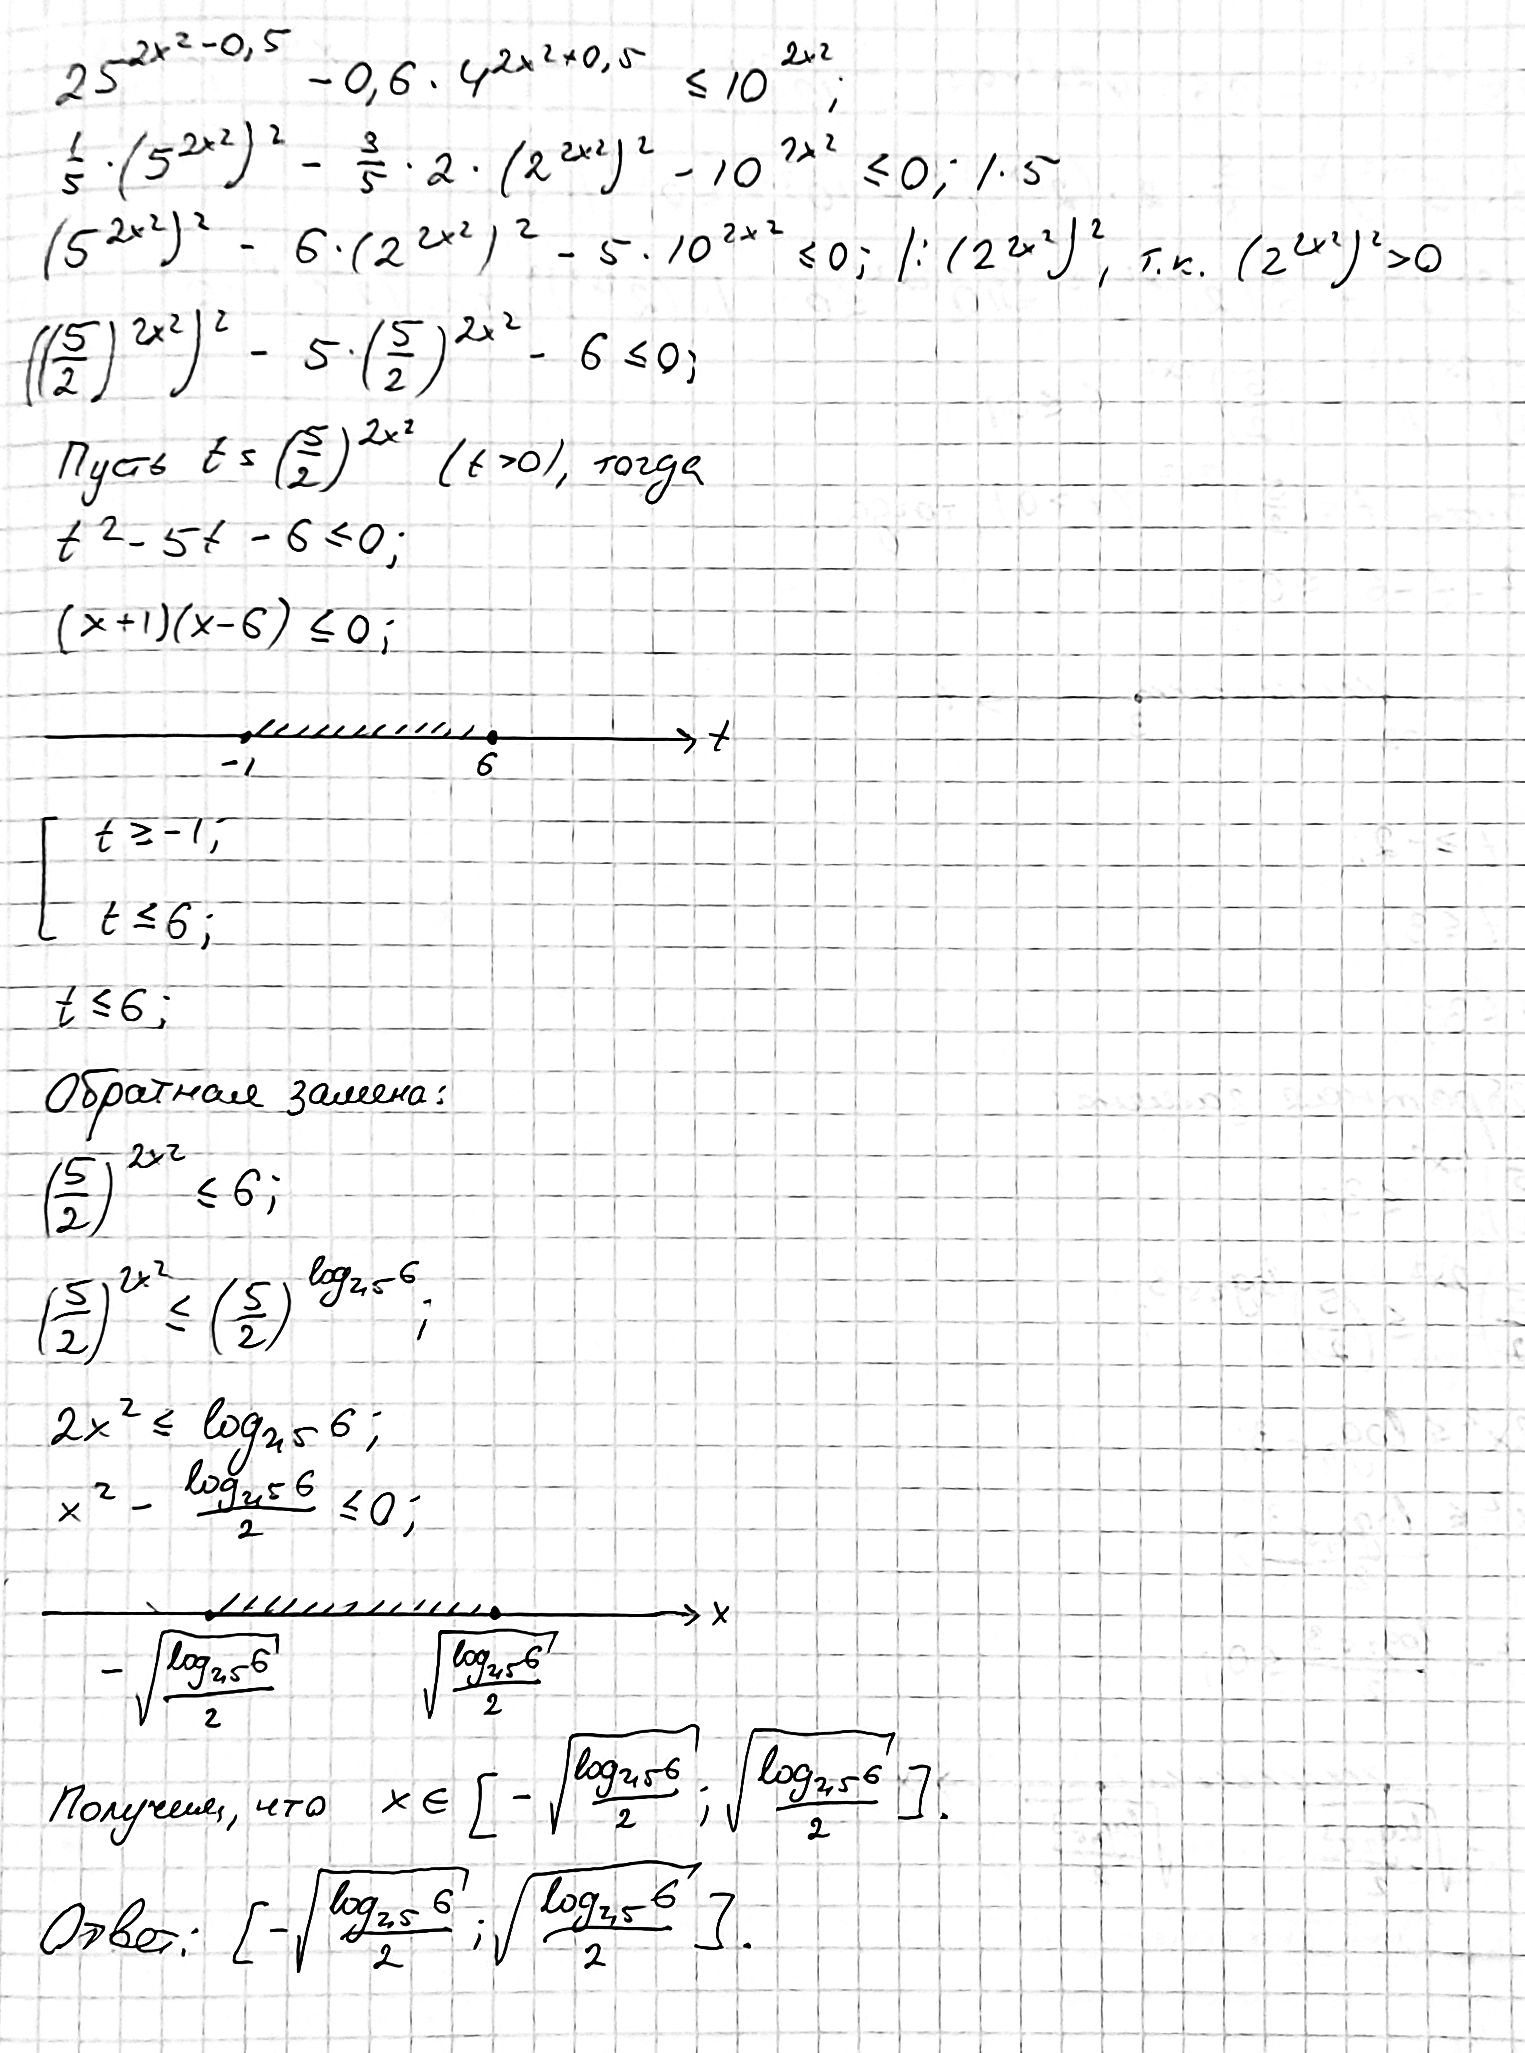 25^{2x²-0,5} - 0,6 · 4^{2x²+0,5} ≤ 10^{2x²};
1/5 · (5^{2x²})² - 3/5 · 2 · (2^{2x²})² - 10^{2x²} ≤ 0; | · 5
(5^{2x²})² - 6 · (2^{2x²})² - 5 · 10^{2x²} ≤ 0; | : (2^{2x²})², т.к. (2^{2x²})² > 0
((5/2)^{2x²})² - 5 · (5/2)^{2x²} - 6 ≤ 0;
Пусть t = (5/2)^{2x²} (t > 0), тогда
t² - 5t - 6 ≤ 0;
(x+1)(x-6) ≤ 0;
-1 6 t
[ t ≥ -1;
t ≤ 6;
t ≤ 6;
Обратная замена:
(5/2)^{2x²} ≤ 6;
(5/2)^{2x²} ≤ (5/2)^{log_{2,5} 6};
2x² ≤ log_{2,5} 6;
x² - (log_{2,5} 6)/2 ≤ 0;
x
-√((log_{2,5} 6)/2) √((log_{2,5} 6)/2)
Получим, что x ∈ [-√((log_{2,5} 6)/2); √((log_{2,5} 6)/2)].
Ответ: [-√((log_{2,5} 6)/2); √((log_{2,5} 6)/2)].